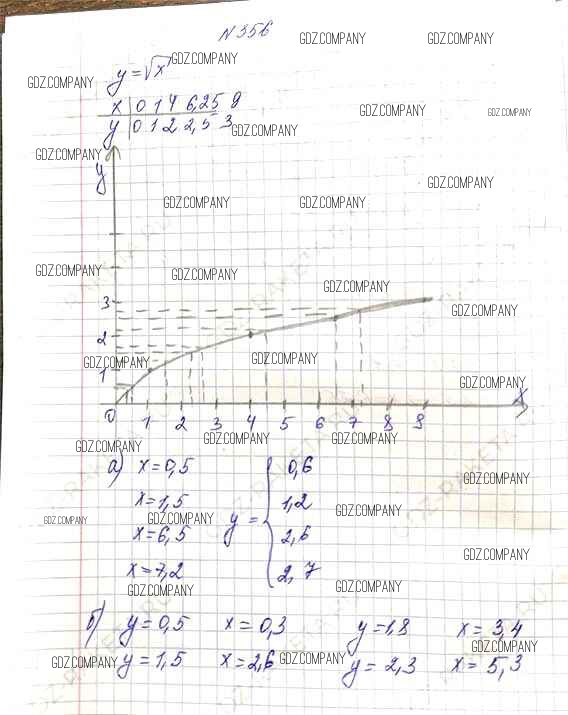 N 356
GDZ.COMPANY GDZ.COMPANY
GDZ.COMPANY
y = √x
GDZ.COMPANY
x | 0 1 4 6,25 9
GDZ.COMPANY GDZ.COMPANY
y | 0 1 2 2,5 3
GDZ.COMPANY
GDZ.COMPANY
y
GDZ.COMPANY
GDZ.COMPANY GDZ.COMPANY
GDZ.COMPANY GDZ.COMPANY
GDZ.COMPANY
3
GDZ.COMPANY
2
GDZ.COMPANY GDZ.COMPANY
1
GDZ.COMPANY
x
0 1 2 3 4 5 6 7 8 9
GDZ.COMPANY GDZ.COMPANY GDZ.COMPANY
а) x = 0,5 0,6
GDZ.COMPANY
x = 1,5 1,2
GDZ.COMPANY GDZ.COMPANY GDZ.COMPANY
y =
x = 6,5 2,6
GDZ.COMPANY
x = 7,2 2,7
GDZ.COMPANY GDZ.COMPANY
б) y = 0,5 x = 0,3 y = 1,8 x = 3,4
GDZ.COMPANY
GDZ.COMPANY y = 1,5 x = 2,6 GDZ.COMPANY y = 2,3 x = 5,3